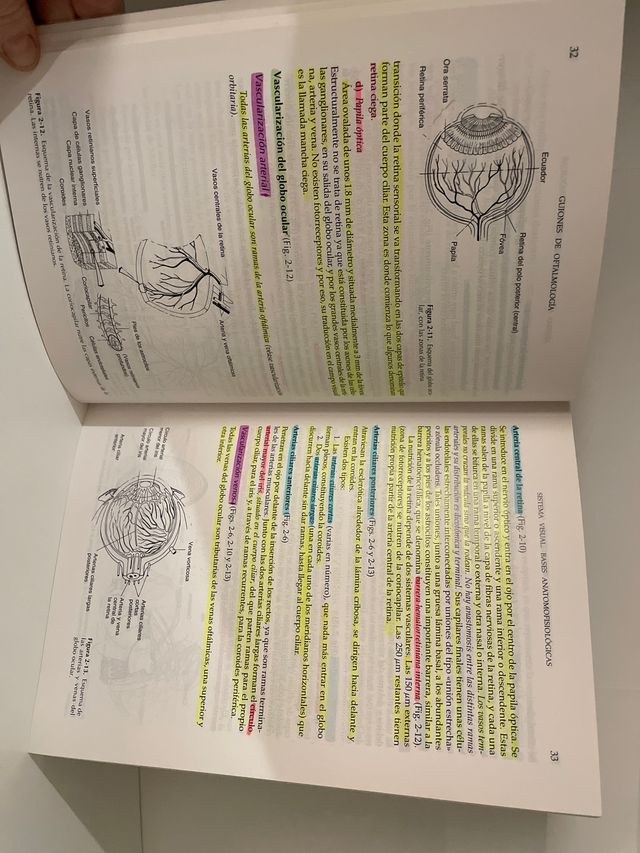 32
GUIONES DE OFTALMOLOGÍA
Ecuador
Ora serrata
Retina periférica
Retina del polo posterior (central)
Fóvea
Papila
Figura 2-11. Esquema del
con las zonas de la retina
transición donde la retina sensorial se va transformando en las dos capas de
forman parte del cuerpo ciliar. Esta zona es donde comienza lo que algunos denominan
retina ciega.
d) Papila óptica
Área ovalada de unos 1,8 mm de diámetro y situada medialmente a 3 mm de la fóvea.
Estructuralmente no se trata de retina ya que está constituida por los axones de las
ganglionares, en su salida del globo ocular, y por los grandes vasos centrales de la
na, arteria y vena. No existen fotorreceptores y por eso, su traducción en el campo visual
es la llamada mancha ciega.
Vascularización del globo ocular (Fig. 2-12)
Vascularización arterial
Todas las arterias del globo ocular son ramas de la arteria oftálmica (véase vascularización
orbitaria).
Vasos centrales de la retina
Arteria y vena oftálmicas
Vasos retinianos superficiales
Capa de células ganglionares
Capa nuclear interna
Coroides
Coriocapilar
Pericitos
Células endoteliales
Figura 2-12. Esquema de la vascularización de la retina. La coriocapilar nutre las
retina. Las internas se nutren de los vasos retinianos.
SISTEMA VISUAL: BASES ANATOMOFISIOLÓGICAS
33
Arteria central de la retina (Fig. 2-10)
Se introduce en el nervio óptico y entra en el ojo por el centro de la papila óptica. Se
divide en una rama superior o ascendente y una rama inferior o descendente. Estas
ramas salen de la papila a nivel de la capa de fibras nerviosas de la retina y cada una
de ellas se bifurca en una rama temporal o externa y otra nasal o interna. Los vasos tem-
porales no cruzan la mácula sino que la rodean. No hay anastomosis entre las distintas ramas
arteriales y su distribución es dicotómica y terminal. Sus capilares finales tienen unas célu-
las endoteliales estrechamente interconectadas por uniones del tipo «unión estrecha»
o zónula occludens. Tales uniones, junto a una gruesa lámina basal, a los abundantes
pericitos y a los pies de los astrocitos constituyen una importante barrera, similar a la
barrera hematoencefálica, que se denomina barrera hematorretiniana interna (Fig. 2-12).
La nutrición de la retina depende de dos sistemas vasculares. Las 150 μm externas
(zona de fotorreceptores) se nutren de la coriocapilar. Las 250 μm restantes tienen
nutrición propia a partir de la arteria central de la retina.
Arterias ciliares posteriores (Figs. 2-6 y 2-13)
Atraviesan la esclerótica alrededor de la lámina cribosa, se dirigen hacia delante y
entran en la coroides.
Existen dos tipos:
1. Las arterias ciliares cortas (varias en número), que nada más entrar en el globo
forman plexos constituyendo la coroides.
2. Dos arterias ciliares largas (una en cada uno de los meridianos horizontales) que
discurren hacia delante sin dar ramas, hasta llegar al cuerpo ciliar.
Arterias ciliares anteriores (Fig. 2-6)
Penetran en el ojo por delante de la inserción de los rectos, ya que son ramas termina-
les de las arterias musculares. Junto con las dos arterias ciliares largas forman el círculo
arterial mayor del iris, situado en el cuerpo ciliar, del que parten ramas para el propio
cuerpo ciliar, para el iris y, a través de ramas recurrentes, para la coroides periférica.
Vascularización venosa (Figs. 2-6, 2-10 y 2-13)
Todas las venas del globo ocular son tributarias de las venas oftálmicas, una superior y
otra inferior.
Círculo arterial
menor del iris
Círculo arterial
mayor del iris
Arteria ciliar
anterior
Vena vorticosa
Arterias ciliares
cortas
posteriores
Arteria y vena
central de
la retina
Arterias ciliares largas
posteriores
Figura 2-13. Esquema de
las arterias y venas del
globo ocular.